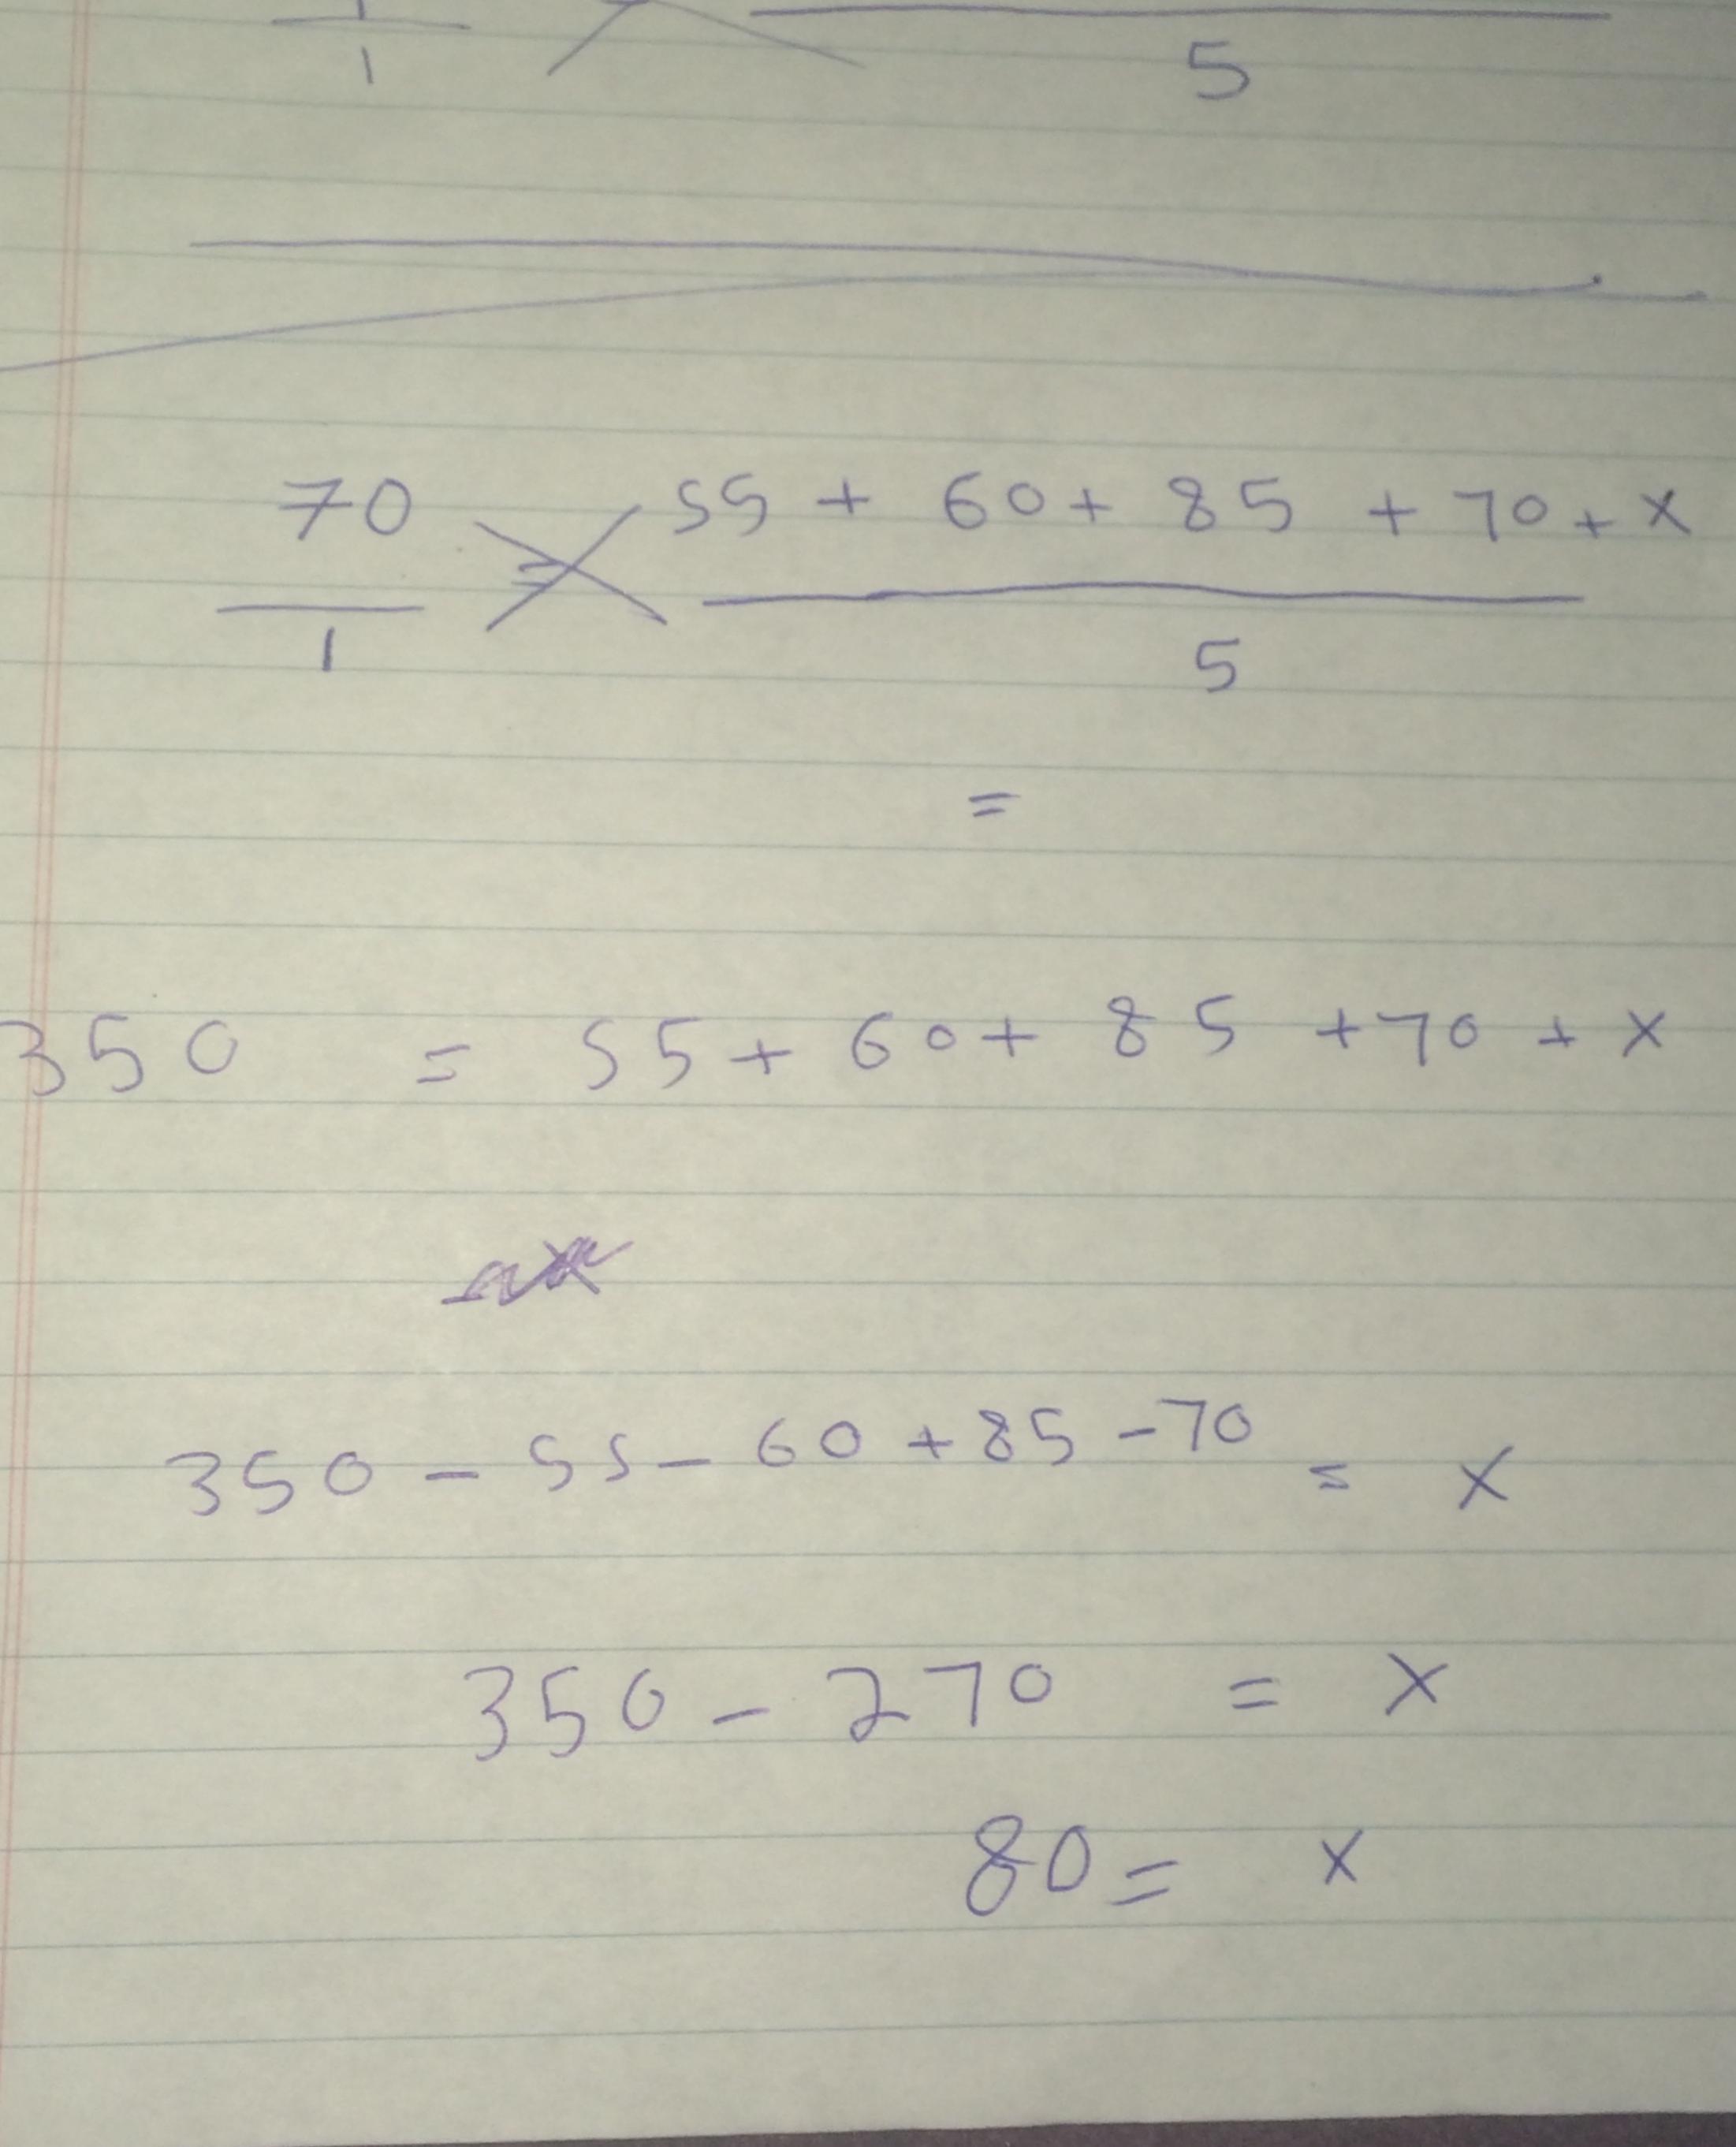 1
5
70 = 55 + 60 + 85 + 70 + x
1 5
=
350 = 55 + 60 + 85 + 70 + x
350 - 55 - 60 + 85 - 70 = x
350 - 270 = x
80 = x